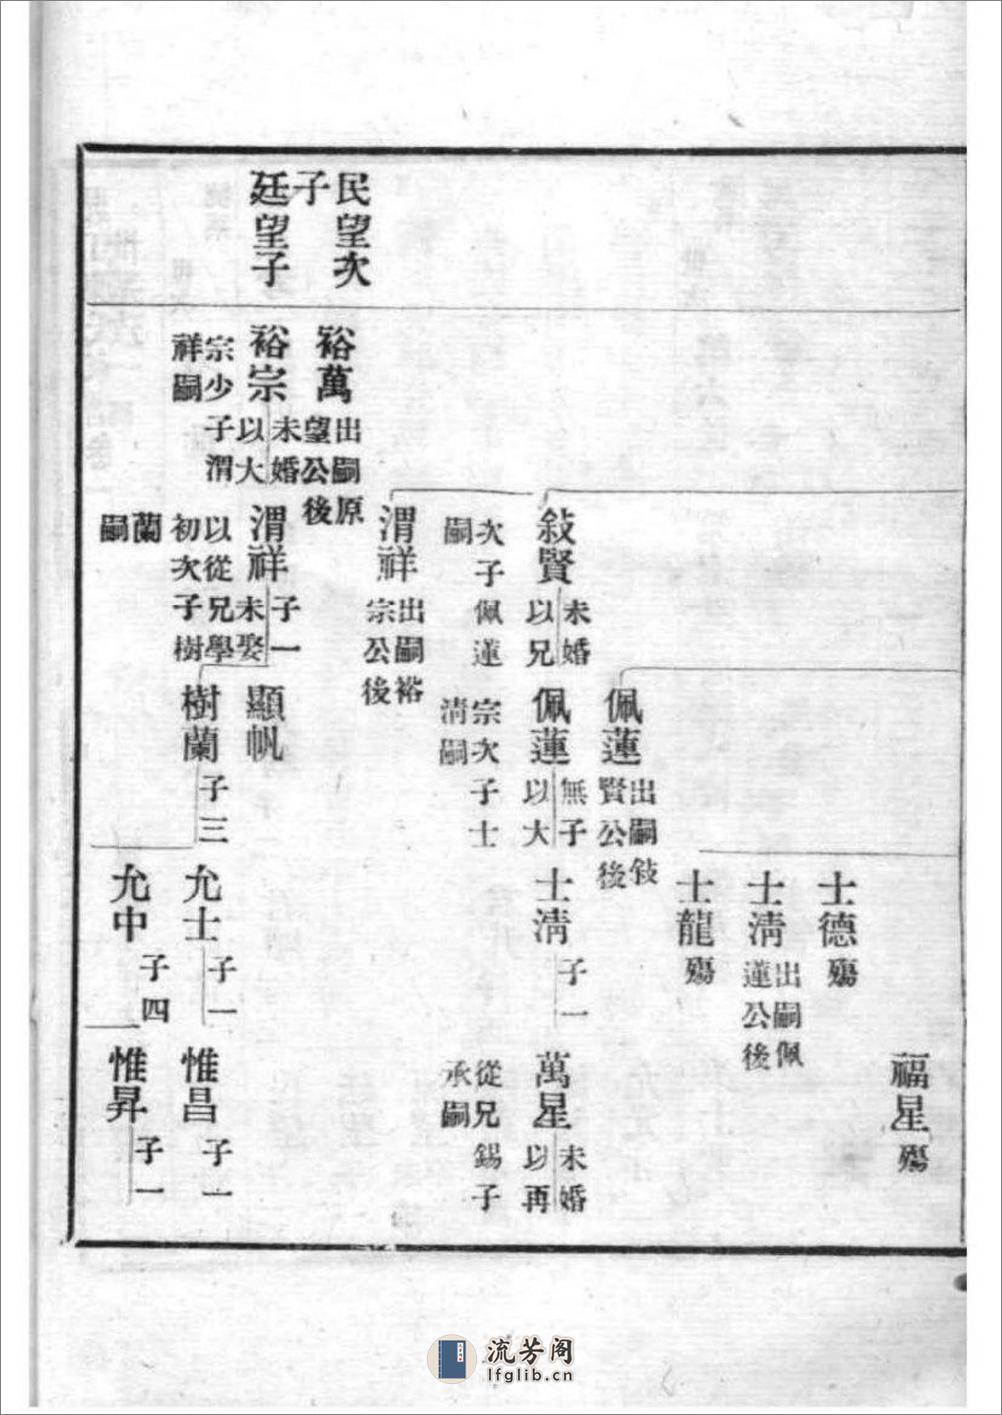 民望次
子
廷望子
裕萬
出嗣原
望公後
裕宗
未婚
以大
宗少子渭
祥嗣
敍賢
未婚
以兄
次子佩蓮
嗣
渭祥
出嗣裕
宗公後
渭祥
子一
未娶
以從兄學
初次子樹
蘭
嗣
佩蓮
出嗣敍
賢公後
佩蓮
無子
以大
宗次子士
淸嗣
顯帆
樹蘭
子三
士德
殤
士淸
出嗣佩
蓮公後
士龍
殤
士淸
子一
允士
子一
允中
子四
福星
殤
萬星
未婚
以再
從兄錫子
承嗣
惟昌
子一
惟昇
子一
流芳阁
lfglib.cn